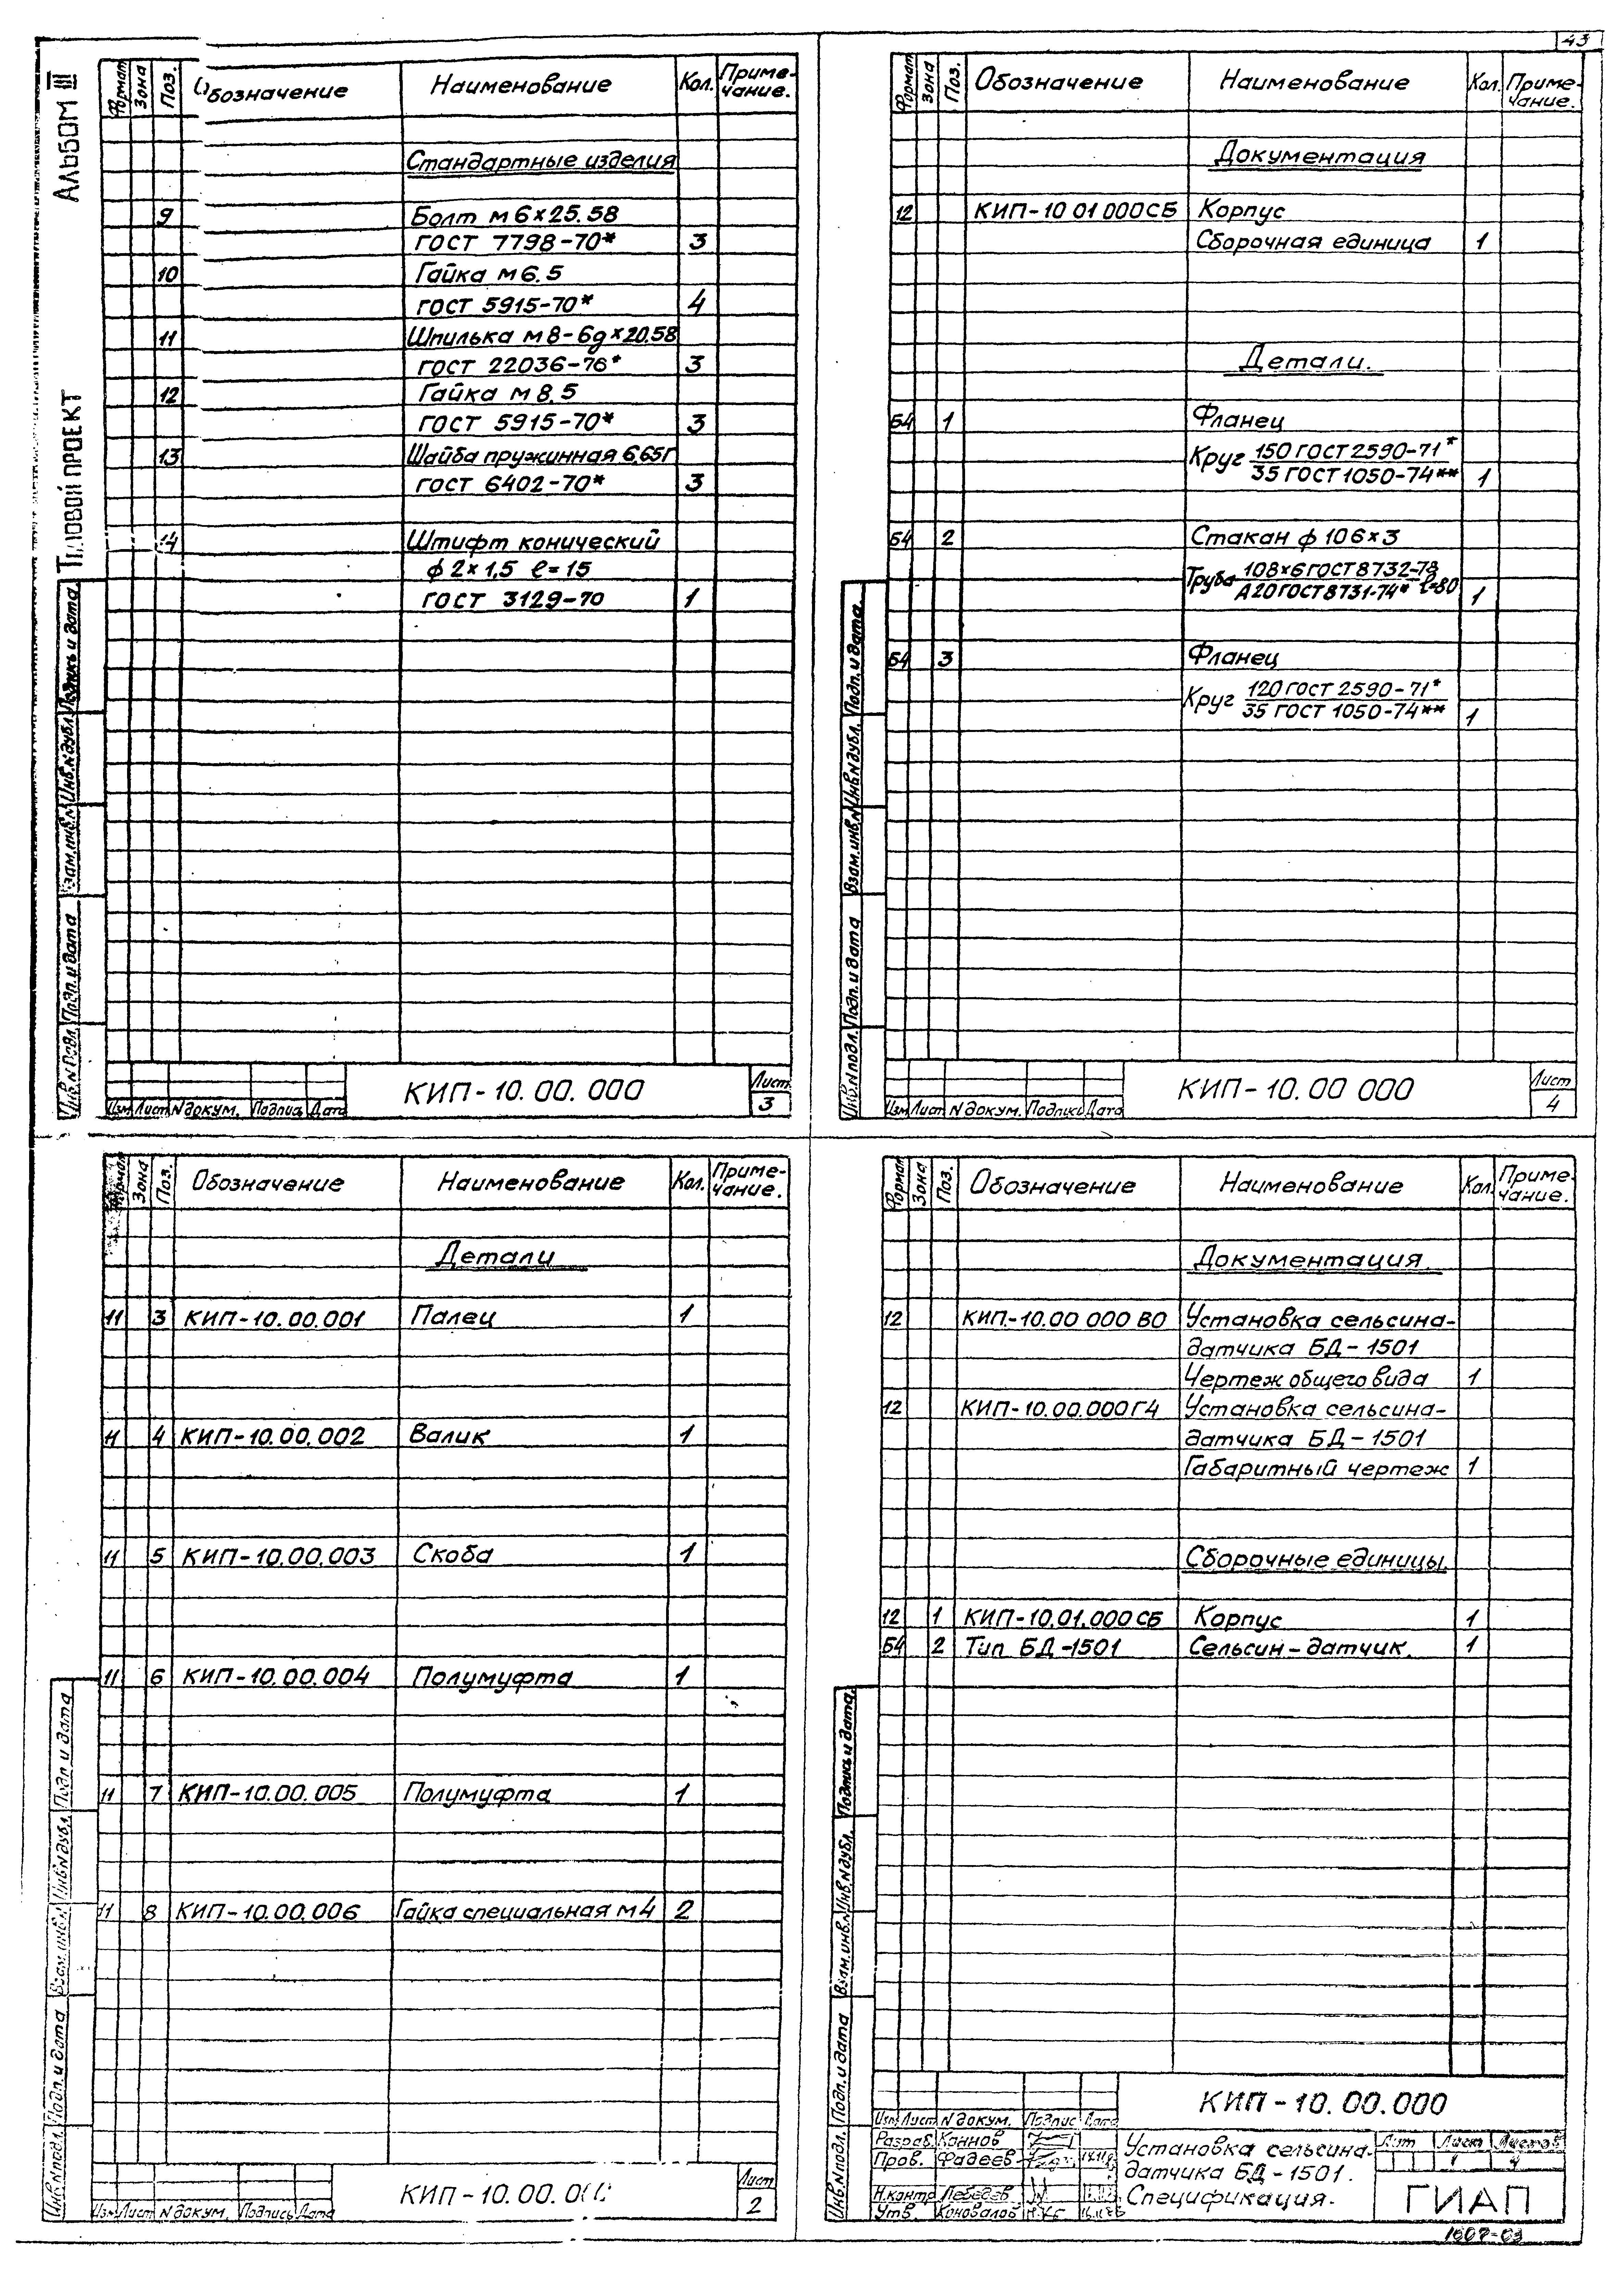 43
Альбом III
Типовой проект
Формат Зона Поз. Обозначение Наименование Кол. Приме-
чание.
Стандартные изделия
9 Болт м 6×25.58
ГОСТ 7798-70* 3
10 Гайка м 6.5
ГОСТ 5915-70* 4
11 Шпилька м 8-6g×20.58
ГОСТ 22036-76* 3
12 Гайка м 8.5
ГОСТ 5915-70* 3
13 Шайба пружинная 6.65Г
ГОСТ 6402-70* 3
14 Штифт конический
ф 2×1,5 ℓ=15
ГОСТ 3129-70 1
Инв.№подл. Подп. и дата Взам.инв.№ Инв.№дубл. Подпись и дата
Изм Лист №докум. Подпись Дата
КИП-10.00.000
Лист
3
Формат Зона Поз. Обозначение Наименование Кол. Приме-
чание.
Документация
12 КИП-10 01 000СБ Корпус
Сборочная единица 1
Детали.
Б4 1 Фланец
Круг 150 ГОСТ 2590-71*
35 ГОСТ 1050-74** 1
Б4 2 Стакан ф 106×3
Труба 108×6 ГОСТ 8732-78
А20 ГОСТ 8731-74* ℓ=80 1
Б4 3 Фланец
Круг 120 ГОСТ 2590-71*
35 ГОСТ 1050-74** 1
Инв.№подл. Подп. и дата Взам.инв.№ Инв.№дубл. Подп. и дата.
Изм Лист №докум. Подпись Дата
КИП-10.00 000
Лист
4
Формат Зона Поз. Обозначение Наименование Кол. Приме-
чание.
Детали
11 3 КИП-10.00.001 Палец 1
11 4 КИП-10.00.002 Валик 1
11 5 КИП-10.00.003 Скоба 1
11 6 КИП-10.00.004 Полумуфта 1
11 7 КИП-10.00.005 Полумуфта 1
11 8 КИП-10.00.006 Гайка специальная м 4 2
Инв.№подл. Подп. и дата Взам.инв.№ Инв.№дубл. Подп и дата
Изм Лист №докум. Подпись Дата
КИП-10.00.000
Лист
2
Формат Зона Поз. Обозначение Наименование Кол. Приме-
чание.
Документация.
12 КИП-10.00 000 ВО Установка сельсина-
датчика БД-1501
Чертеж общего вида 1
12 КИП-10.00.000Г4 Установка сельсина-
датчика БД-1501
Габаритный чертеж 1
Сборочные единицы.
12 1 КИП-10.01.000СБ Корпус 1
Б4 2 Тип БД-1501 Сельсин-датчик. 1
Инв.№подл. Подп. и дата Взам.инв.№ Инв.№дубл. Подпись и дата.
КИП-10.00.000
Изм Лист №докум. Подпис Дата
Разраб. Коннов
Пров. Фадеев
Н.контр Лебедев
Утв. Коновалов
Установка сельсина-
датчика БД-1501.
Спецификация.
Лит Лист Листов
1 4
ГИАП
1607-03